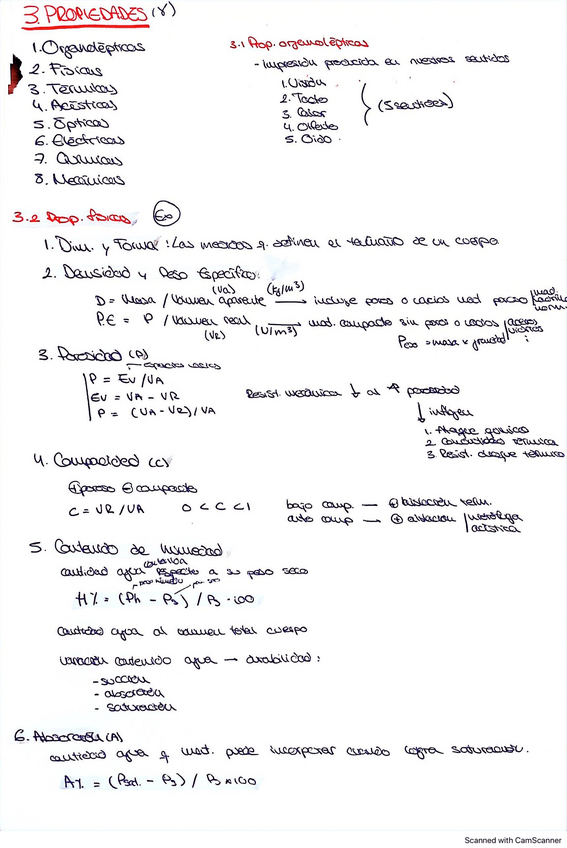 3. PROPIEDADES (8)
1. Organolépticas
2. Físicas
3. Térmicas
4. Acústicas
5. Ópticas
6. Eléctricas
7. Químicas
8. Mecánicas
3.1 Prop. organolépticas
- Impresión producida en nuestros sentidos
1. Visión
2. Tacto
3. Olfato
5. Oído.
3.2 Prop. físicas
1. Dim. y Forma: Las medidas q. definen el tamaño de un cuerpo
2. Densidad y Peso Específico:
(VA) (kg/m3)
D = Masa / Volumen aparente → incluye poros o vacíos mat. poroso
P.E = P / Volumen real → mat. compacto sin poros o vacíos
(VR) (N/m3)
Peso = masa x gravedad
3. Porosidad (P)
espacios vacíos
P = EV / VA
EV = VA - VR
P = (VA - VR) / VA
Resist. mecánica ↓ al ↑ porosidad
↓ influyen
1. Ataque químico
2. Conductividad térmica
3. Resist. choque térmico
4. Compacidad (C)
⊕ poroso ⊖ compacto
C = VR / VA 0 < C < 1
bajo comp. — ⊕ aislación term.
alto comp — ⊕ aislación
acústica
5. Contenido de humedad
cantidad agua contenida respecto a su peso seco
H% = (Ph - Ps) / Ps · 100
Cantidad agua al volumen total cuerpo
variación contenido agua → durabilidad:
- succión
- absorción
- saturación
6. Absorción (A)
cantidad agua q mat. puede incorporar cuando logra saturación.
A% = (Psat. - Ps) / Ps x 100
Scanned with CamScanner